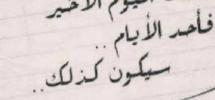 اليوم الأخير
فأحد الأيام ..
سيكون كذلك ..